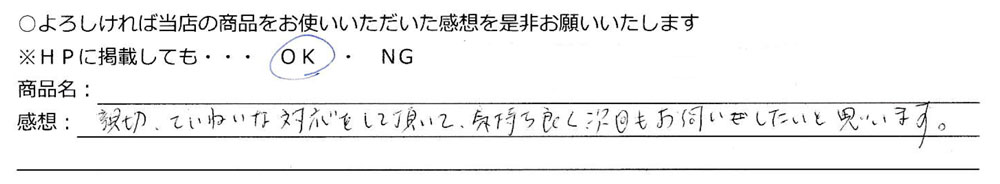 ○よろしければ当店の商品をお使いいただいた感想を是非お願いいたします
※ＨＰに掲載しても・・・ ＯＫ ・ ＮＧ
商品名：
感想： 親切、ていねいな対応をして頂いて、気持ち良く次回もお伺いをしたいと思います。